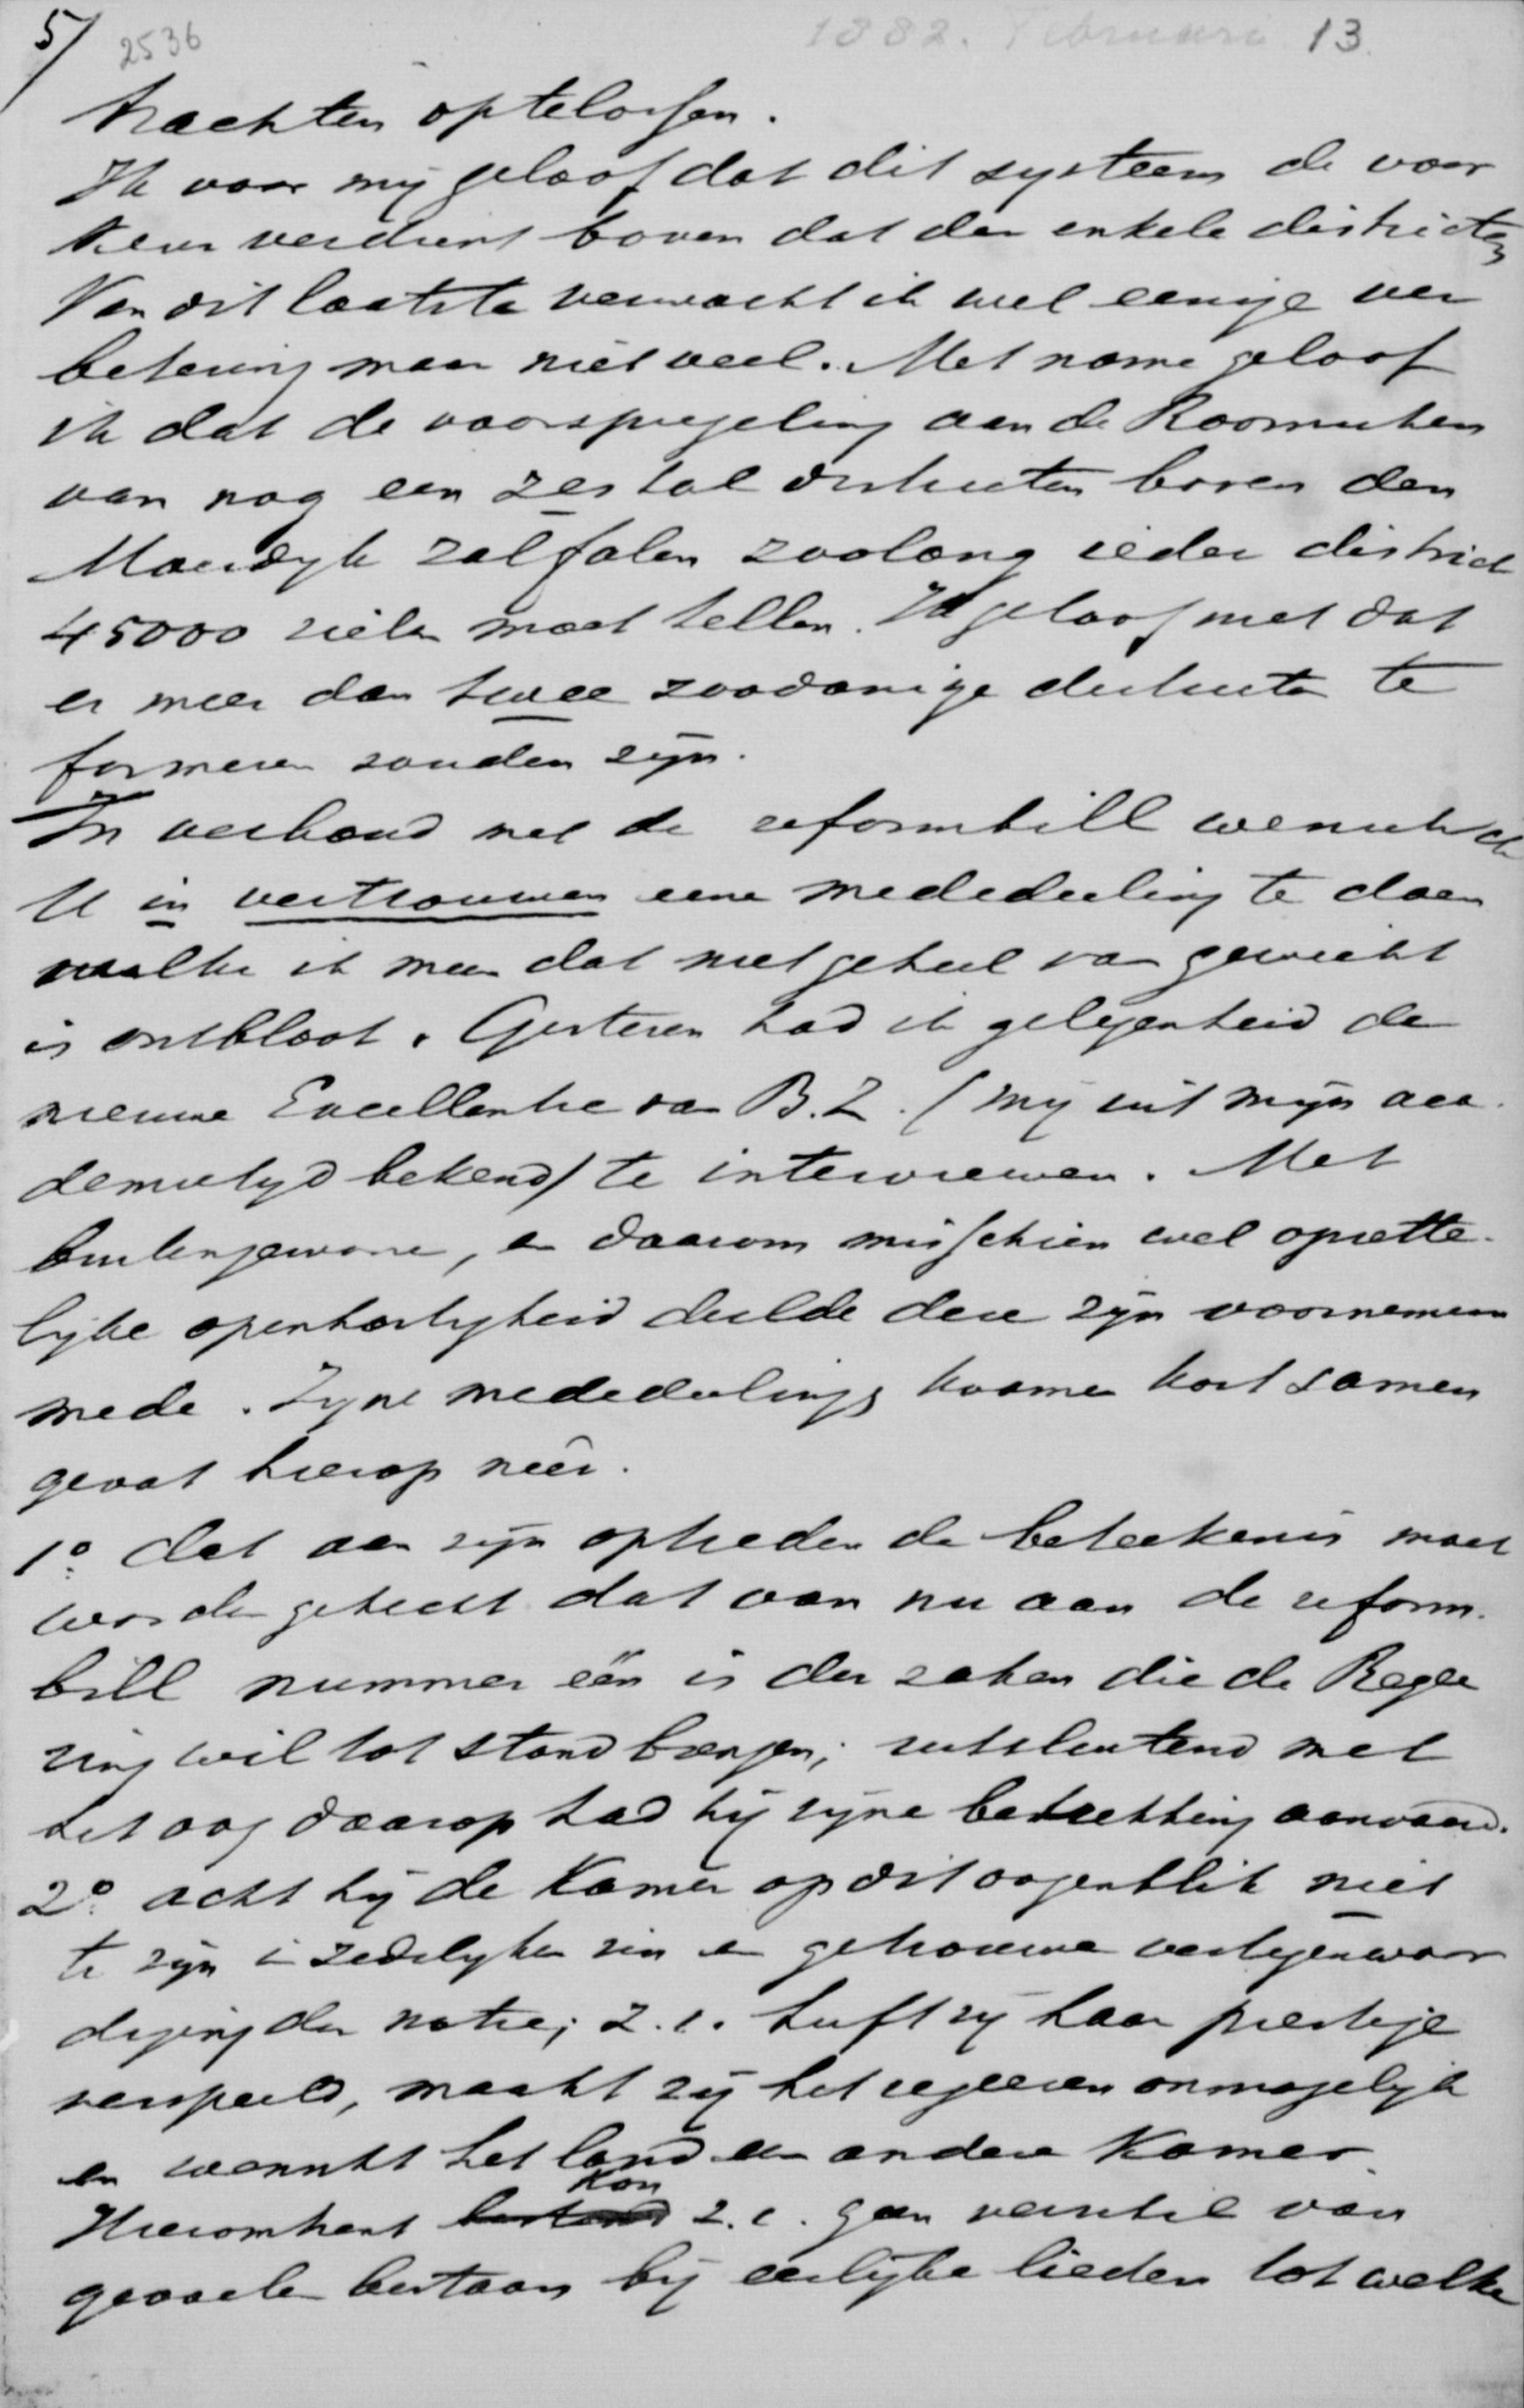 5/ 2536 1882. Februari 13.
trachten optelossen.
Ik voor mij geloof dat dit systeem de voor
keur verdient boven dat der enkele districten
Van dit laatste verwacht ik wel eenige ver
betering maar niet veel. Met name geloof
ik dat de voorspiegeling aan de Roomschen
van nog een zestal districten boven den
Moerdijk zal falen zoolang ieder district
45000 zielen moet tellen. Ik geloof niet dat
er meer dan twee zoodanige districten te
formeren zouden zijn.
In verband met de reformbill wensch ik
U in vertrouwen eene mededeeling te doen
welke ik meen dat niet geheel van gewicht
is ontbloot. Gisteren had ik gelegenheid de
nieuwe Excellentie van B.Z. (mij uit mijn aca
demietijd bekend) te interviewen. Met
buitengewone, en daarom misschien wel opzette-
lijke openhartigheid deelde deze zijn voornemen
mede. Zijne mededeelingen kwamen kort samen
gevat hierop neêr.
1o. dat aan zijn optreden de beteekenis moet
worden gehecht dat van nu aan de reform-
bill nummer één is der zaken die de Regee
ring wil tot stand brengen; uitsluitend met
het oog daarop had hij zijne betrekking aanvaard.
2o. acht hij de Kamer op dit oogenblik niet
te zijn in zedelijken zin een getrouwe vertegenwoor
diging der natie; z.i. heeft zij haar prestige
verspeeld, maakt zij het regeeren onmogelijk
en wenscht het land een andere Kamer.
Hieromtrent bestond kon z.i. geen verschil van
gevoelen bestaan bij eerlijke lieden tot welke